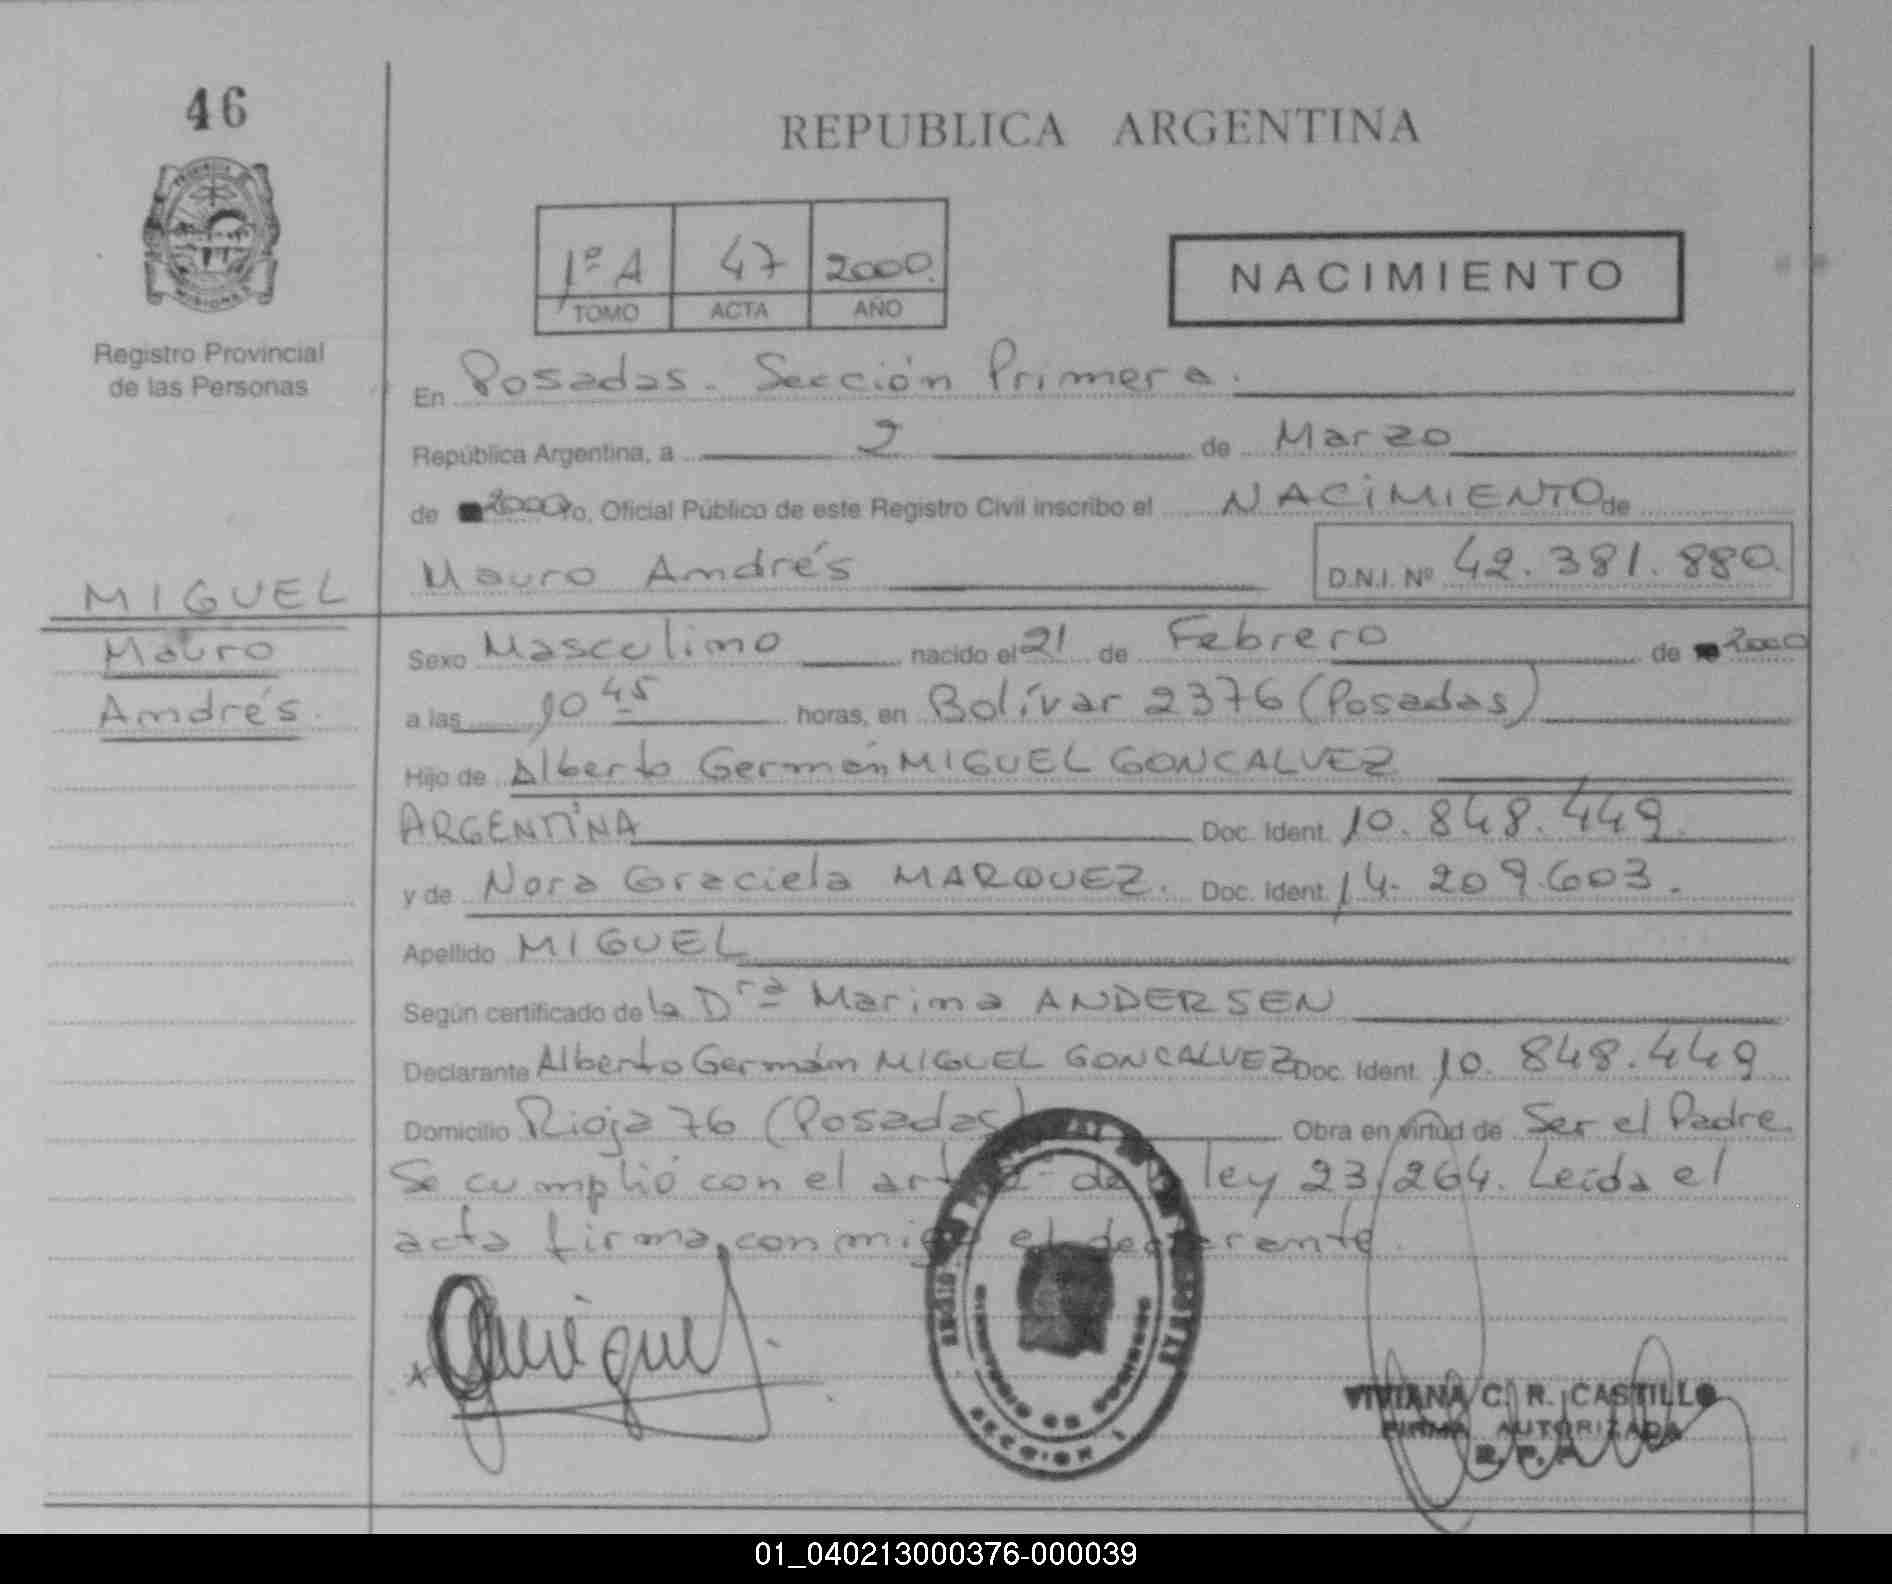 46
REPUBLICA ARGENTINA
1º A 47 2000.
TOMO ACTA AÑO
NACIMIENTO
Registro Provincial
de las Personas
En Posadas. Sección Primera.
República Argentina, a 2 de Marzo
de 2000 Yo, Oficial Público de este Registro Civil inscribo el NACIMIENTO de
Mauro Andrés D.N.I. Nº 42.381.880.
MIGUEL
Mauro
Andrés.
Sexo Masculino nacido el 21 de Febrero de 2000
a las 10 45 horas, en Bolívar 2376 (Posadas)
Hijo de Alberto Germán MIGUEL GONCALVEZ
ARGENTINA Doc. Ident. 10.848.449.
y de Nora Graciela MARQUEZ. Doc. Ident. 14.209.603.
Apellido MIGUEL
Según certificado de la Drª Marina ANDERSEN
Declarante Alberto Germán MIGUEL GONCALVEZ Doc. Ident. 10.848.449
Domicilio Rioja 76 (Posadas) Obra en virtud de Ser el Padre
Se cumplió con el art ley 23.264. Leída el
acta firma conmigo el declarante.
SECCION 1
VIVIANA C. R. CASTILLO
FIRMA AUTORIZADA
R. P. P.
01_040213000376-000039